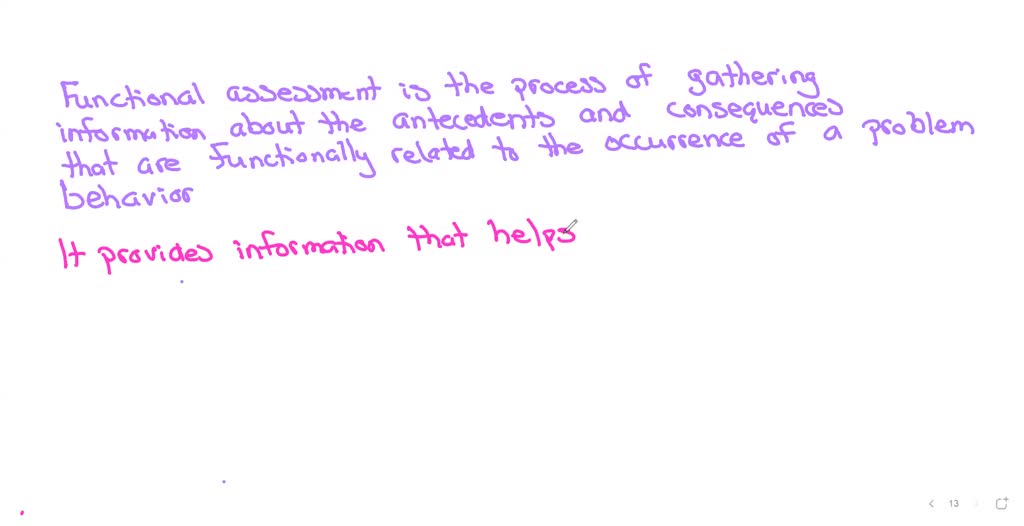 Functional assessment is the process of gathering
information about the antecedents and consequences
that are functionally related to the occurrence of a problem
behavior
It provides information that helps
13